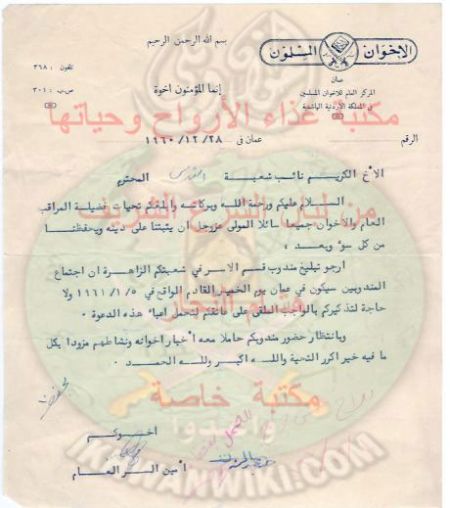 بسم الله الرحمن الرحيم
الإخوان المسلمون
تلفون : ٣٦٨
عمان
إنما المؤمنون اخوة
المركز العام للاخوان المسلمين
ص.ب : ٣٠١
في المملكة الأردنية الهاشمية
مكتبة غذاء الأرواح وحياتها
الرقم
عمان في ٢٨ / ١٢ / ١٩٦٠
الأخ الكريم نائب شعبة القدس المحترم
السلام عليكم ورحمة الله وبركاته وابلغكم تحيات فضيلة المراقب
العام والاخوان جميعا سائلا المولى عزوجل ان يثبتنا على دينه ويحفظنا
من كل سوء وبعد ،
ارجو تبليغ مندوب قسم الاسر في شعبتكم الزاهرة ان اجتماع
المندوبين سيكون في عمان يوم الخميس القادم الواقع في ١٩٦١/١/٥ ولا
حاجة لتذكيركم بالواجب الملقى على عاتقكم لتحمل اعباء هذه الدعوة .
وبانتظار حضور مندوبكم حاملا معه أخبار اخوانه ونشاطهم مزودا بكل
ما فيه خير اكرر التحية والله اكبر ولله الحمد .
مكتبة خاصة
وأعدوا
اخوكم
أمين السر العام
IKHWANWIKI.COM